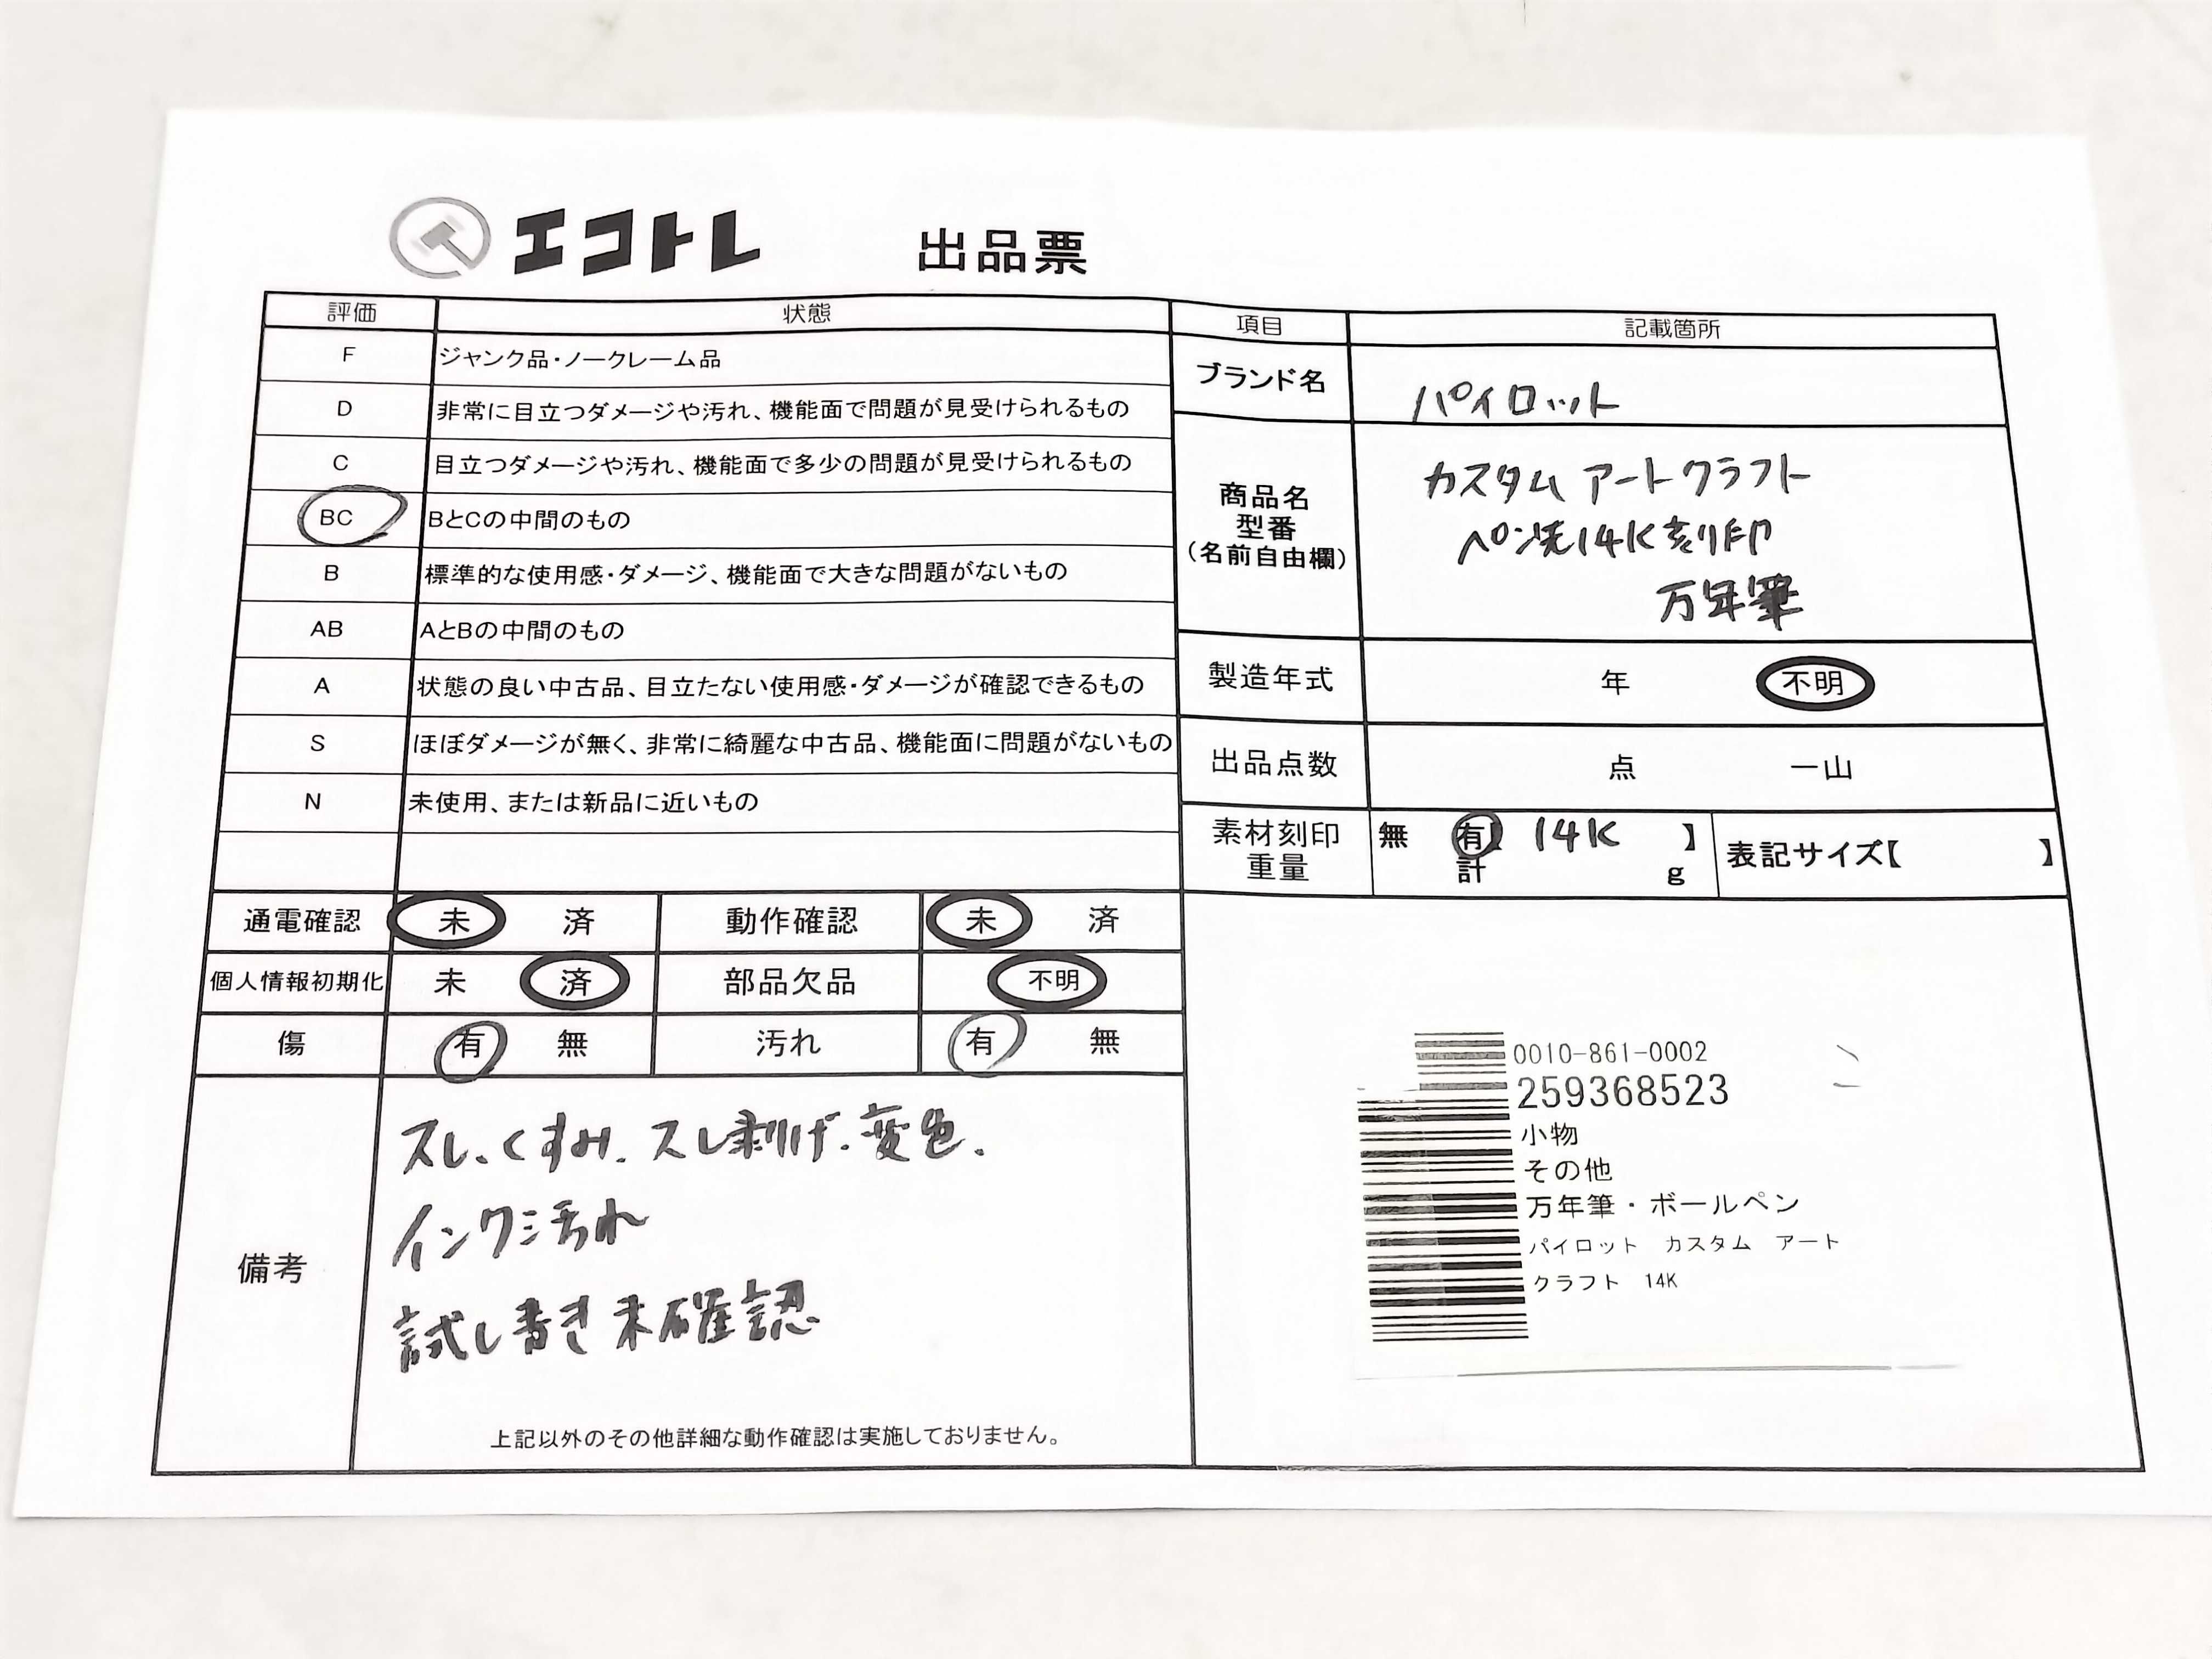 エコトレ 出品票
評価 状態
F ジャンク品・ノークレーム品
D 非常に目立つダメージや汚れ、機能面で問題が見受けられるもの
C 目立つダメージや汚れ、機能面で多少の問題が見受けられるもの
BC BとCの中間のもの
B 標準的な使用感・ダメージ、機能面で大きな問題がないもの
AB AとBの中間のもの
A 状態の良い中古品、目立たない使用感・ダメージが確認できるもの
S ほぼダメージが無く、非常に綺麗な中古品、機能面に問題がないもの
N 未使用、または新品に近いもの
通電確認 未 済 動作確認 未 済
個人情報初期化 未 済 部品欠品 不明
傷 有 無 汚れ 有 無
備考
スレ、くすみ、スレ剥げ、変色、
インク汚れ
試し書き未確認
上記以外のその他詳細な動作確認は実施しておりません。
項目 記載箇所
ブランド名 パイロット
商品名
型番
(名前自由欄)
カスタム アートクラフト
ペン先14K刻印
万年筆
製造年式 年 不明
出品点数 点 一山
素材刻印 無 有【 14K 】
重量 計 g
表記サイズ【 】
0010-861-0002
259368523
小物
その他
万年筆・ボールペン
パイロット カスタム アート
クラフト 14K